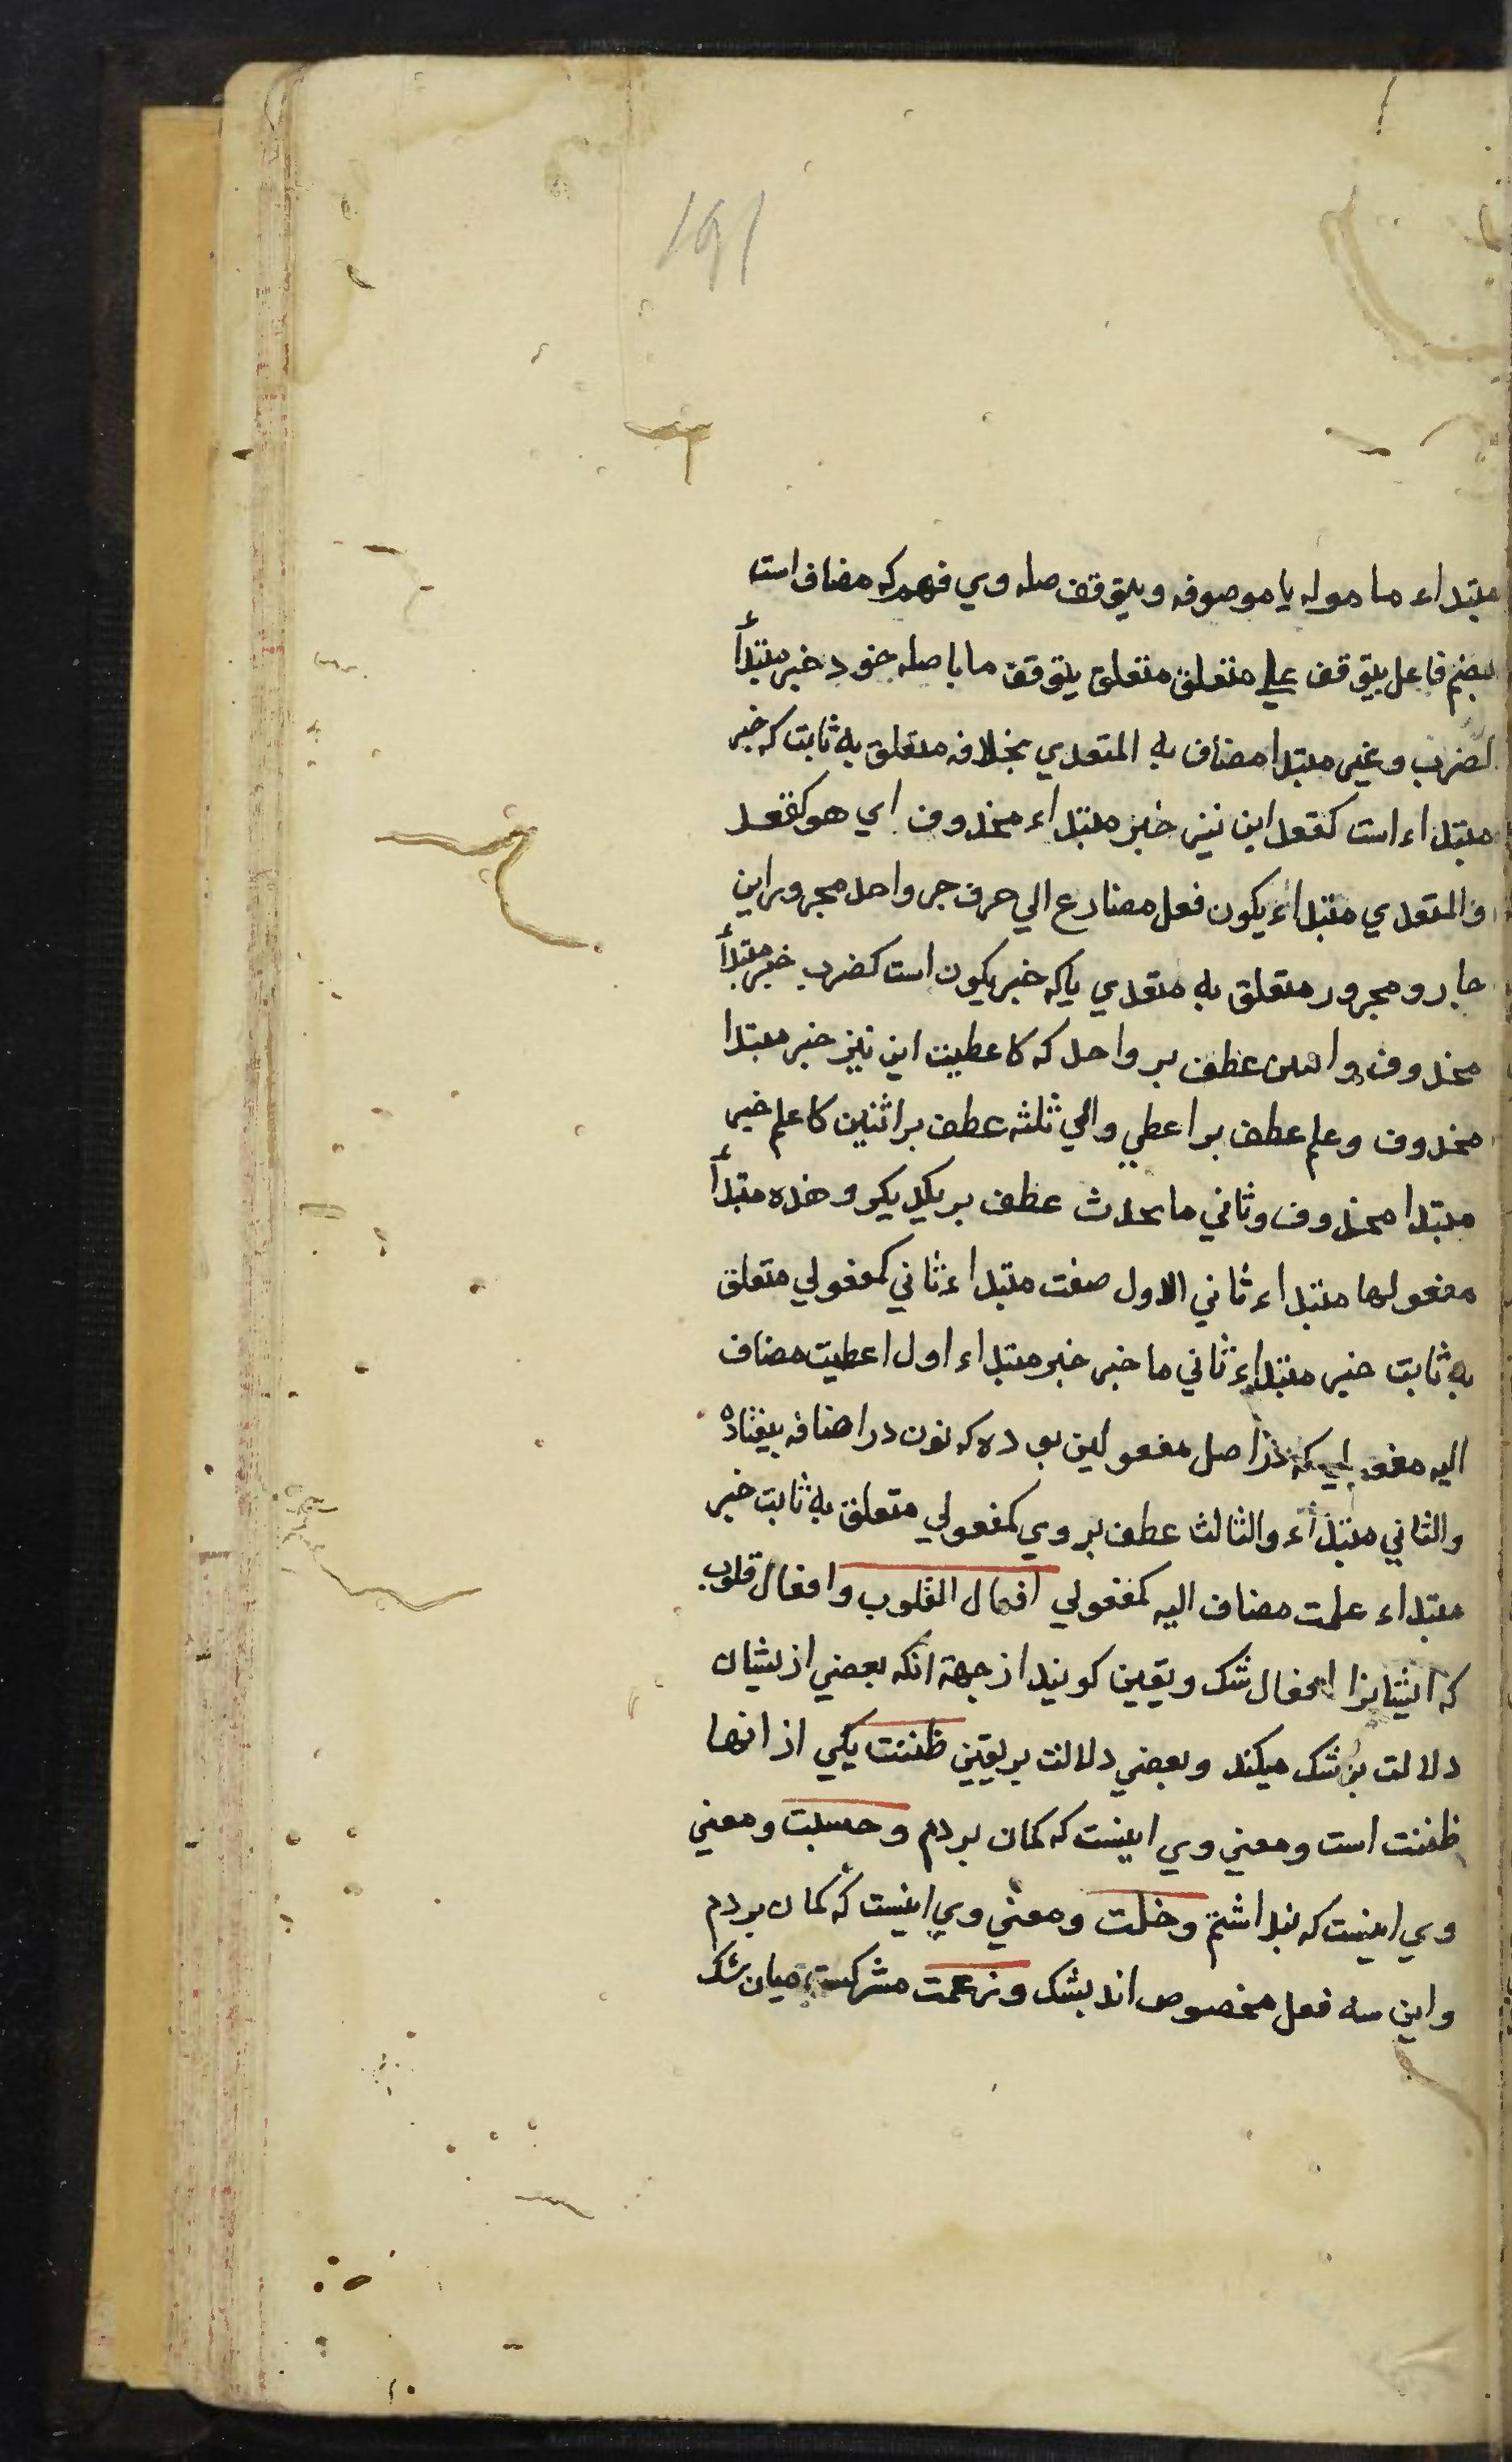 ۱۹۱
مبتداء ما موله یا موصوفه ویتوقف صله وي فهم که مضاف است
بضم فاعل یتوقف علی متعلق متعلق یتوقف ما با صله خود خبر مبتدأ
کضرب وغیر مبتدا مضاف به المتعدي بخلافه متعلق به ثابت که خبر
مبتداء است کقعد این نیز خبر مبتداء محذوف اي هو کقعد
والمتعدي مبتداء یکون فعل مضارع الي حرف جر واحد مجرور این
جار ومجرور متعلق به متعدي یا که خبر یکون است کضرب خبر مبتدأ
محذوف واثنین عطف بر واحد که کاعطیت این نیز خبر مبتدا
محذوف وعلم عطف بر اعطي والي ثلثه عطف بر اثنین کاعلم خبر
مبتدا محذوف وثاني ما یحدث عطف بر یکدیکر وهذه مبتدأ
مفعولها مبتداء ثاني الاول صفت مبتداء ثاني کمفعولي متعلق
به ثابت خبر مبتداء ثاني ما خبر خبر مبتداء اول اعطیت مضاف
الیه مفعولي که در اصل مفعولین بوده که نون در اضافه بیفتاده
والثاني مبتداء والثالث عطف بر وي کمفعولي متعلق به ثابت خبر
مبتداء علمت مضاف الیه کمفعولي افعال القلوب وافعال قلوب
که ایشانرا افعال شک ویقین کویند از جهة انکه بعضي از یشان
دلالت بر شک میکند وبعضي دلالت بر یقین ظننت یکي از انها
ظننت است ومعني وي اینست که کمان بردم وحسبت ومعني
وي اینست که پنداشتم وخلت ومعني وي اینست که کمان بردم
واین سه فعل مخصوص اند بشک وزعمت مشرکست میان شک